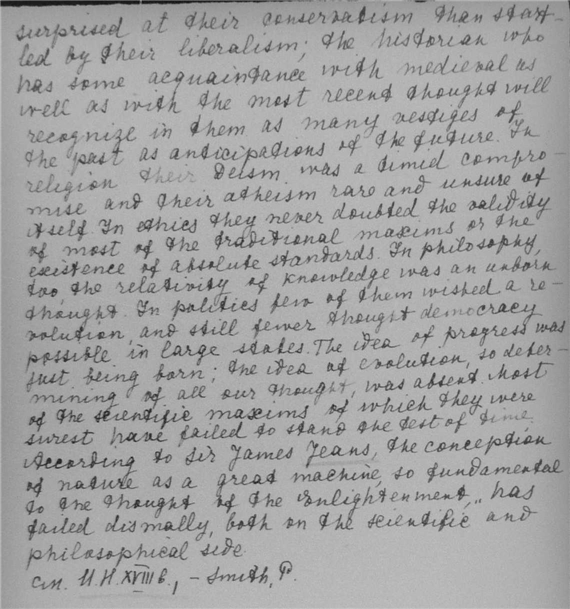 surprised at their conservatism than start-
led by their liberalism; the historian who
has some acquaintance with medieval as
well as with the most recent thought will
recognize in them as many vestiges of
the past as anticipations of the future. In
religion their Deism was a timid compro-
mise and their atheism rare and unsure of
itself. In ethics they never doubted the validity
of most of the traditional maxims or the
existence of absolute standards. In philosophy,
too, the relativity of knowledge was an unborn
thought. In politics few of them wished a re-
volution, and still fewer thought democracy
possible in large states. The idea of progress was
just being born; the idea of evolution, so deter-
mining of all our thought, was absent. Most
of the scientific maxims of which they were
surest have failed to stand the test of time.
According to Sir James Jeans, the conception
of nature as a great machine, so fundamental
to the thought of the Enlightenment, „has
failed dismally, both on the scientific and
philosophical side
см. И.Н. XVIII в., – Smith, P.